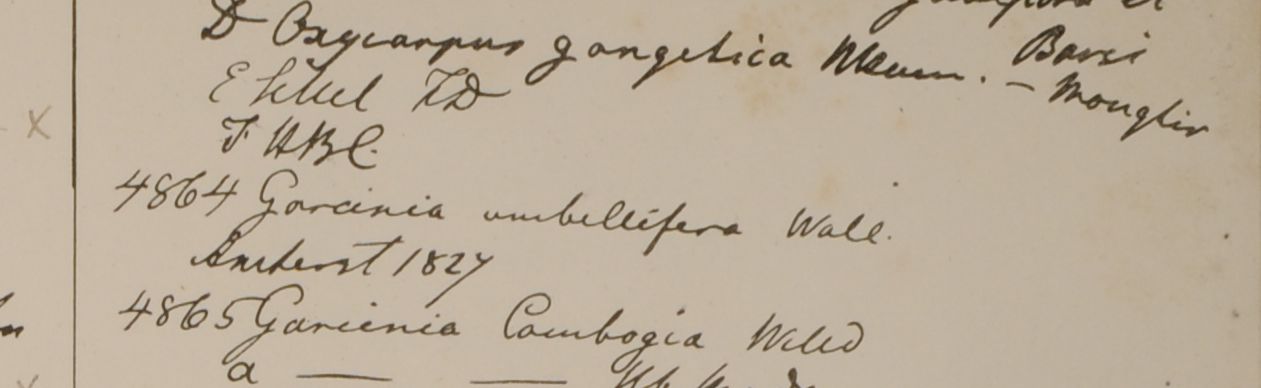 D Oxycarpus gangetica Ham. Barsi – Monghir
E Silhet FD
F HBC.
4864 Garcinia umbellifera Wall.
Amherst 1827
4865 Garcinia Cambogia Willd
a — —